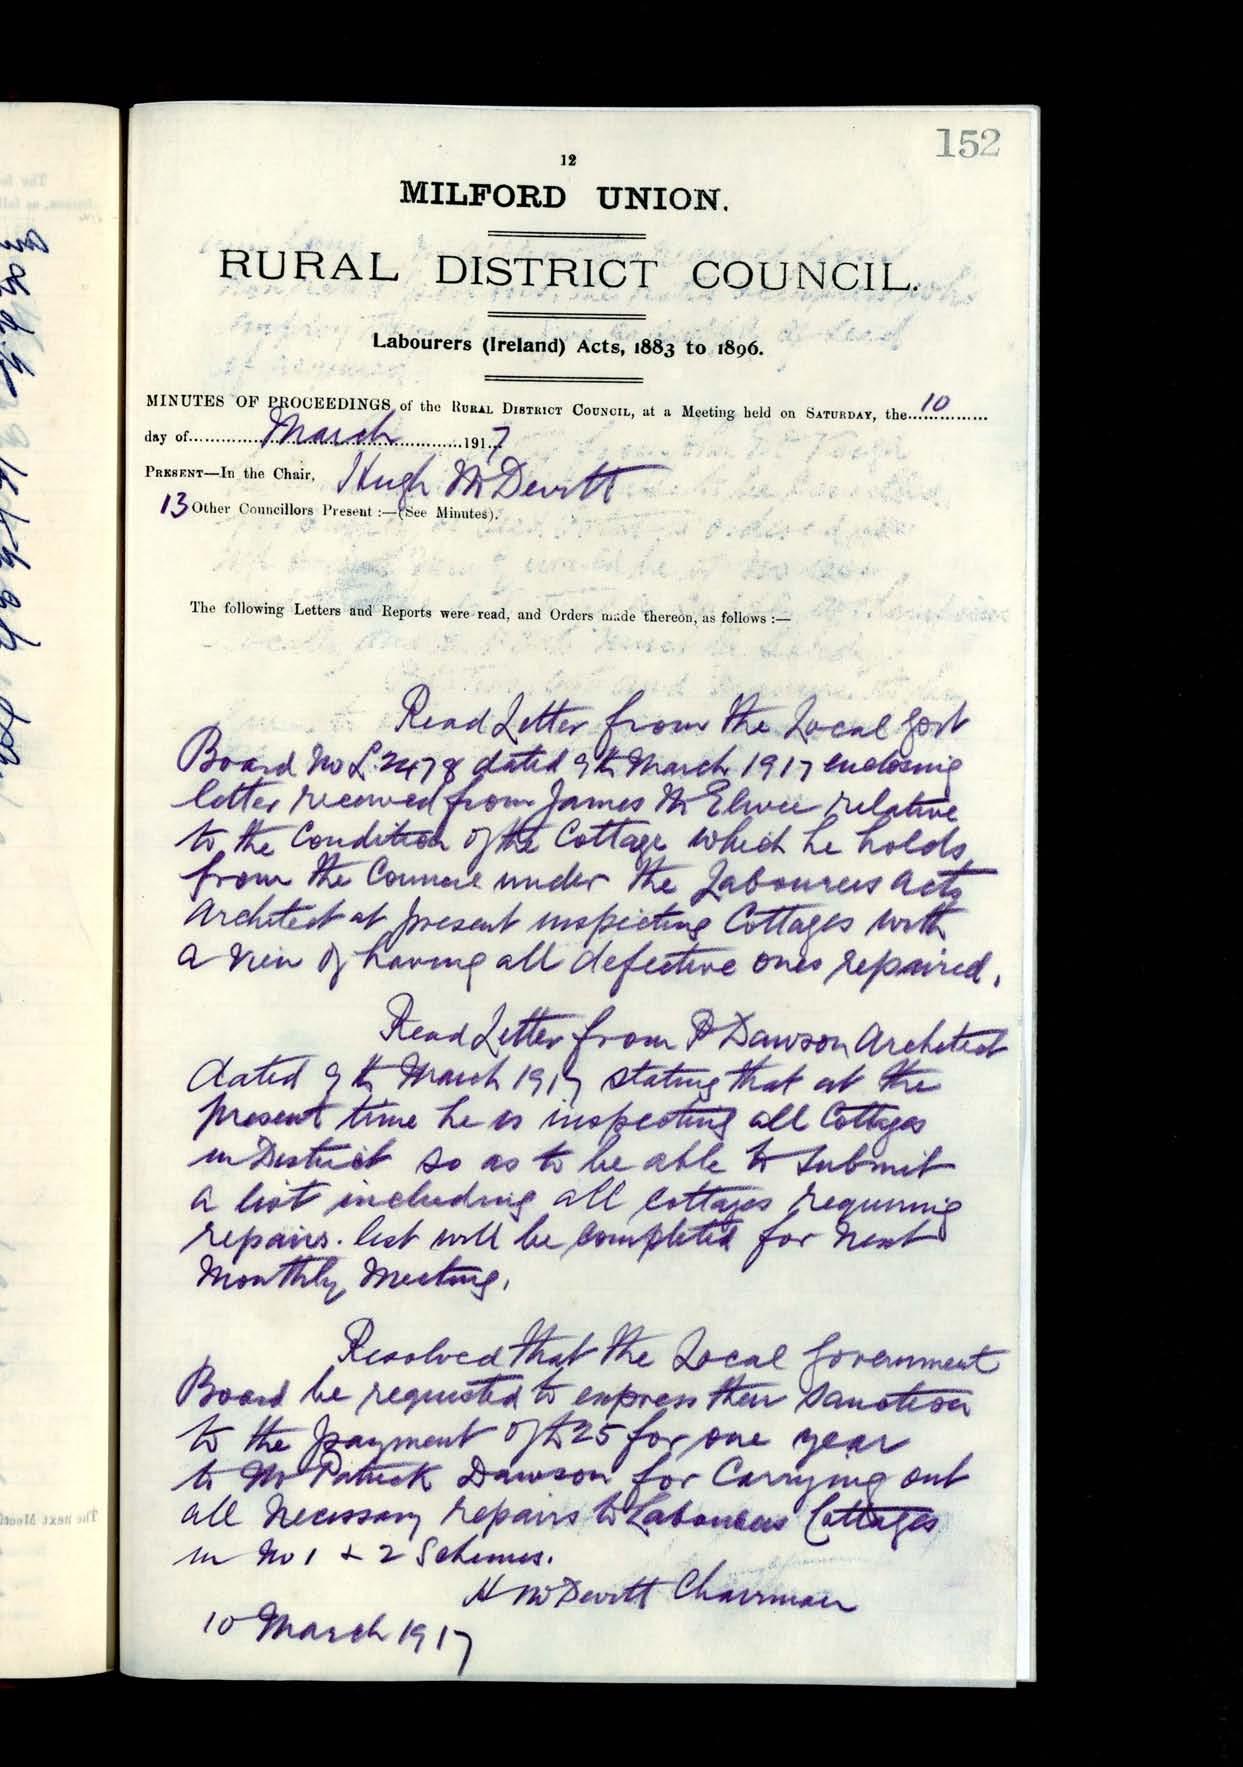 152
12
MILFORD UNION.
RURAL DISTRICT COUNCIL.
Labourers (Ireland) Acts, 1883 to 1896.
MINUTES OF PROCEEDINGS of the RURAL DISTRICT COUNCIL, at a Meeting held on SATURDAY, the 10
day of March 1917
PRESENT—In the Chair, Hugh McDevitt
13 Other Councillors Present :—(See Minutes).
The following Letters and Reports were read, and Orders made thereon, as follows :—
Read Letter from the Local Govt
Board No L.2478 dated 9th March 1917 enclosing
letter received from James McElwee relative
to the Condition of the Cottage which he holds
from the Council under the Labourers Acts
Architect at present inspecting Cottages with
a view of having all defective ones repaired.
Read Letter from P Dawson Architect
dated 9th March 1917 stating that at the
present time he is inspecting all Cottages
in District so as to be able to submit
a list including all Cottages requiring
repairs. list will be completed for next
Monthly Meeting.
Resolved that the Local Government
Board be requested to express their Sanction
to the payment of £25 for one year
to Mr Patrick Dawson for Carrying out
all necessary repairs to Labourers Cottages
in No 1 & 2 Schemes.
H McDevitt Chairman
10 March 1917